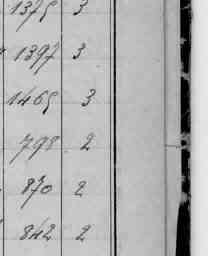 1375 3
1397 3
1465 3
798 2
870 2
842 2